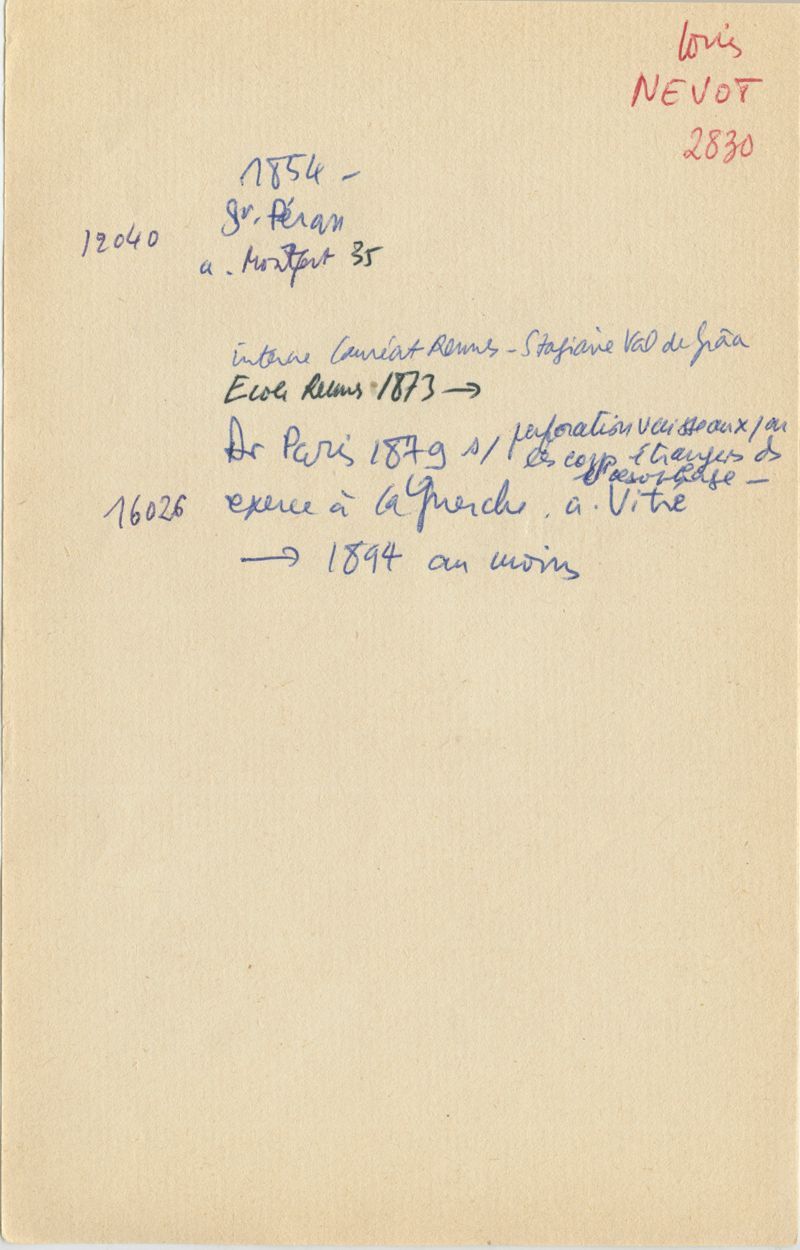 Louis
NEVOT
2830
1854 -
St. Péran
12040
a. Montfort 35
interne lauréat Rennes - Stagiaire Val de Grâce
Ecole Rennes 1873 →
Dr Paris 1879 s/ perforation vaisseaux par
les corps étrangers ds
l'oesophage -
16026 exerce à la Guerche. a. Vitré
→ 1894 au moins